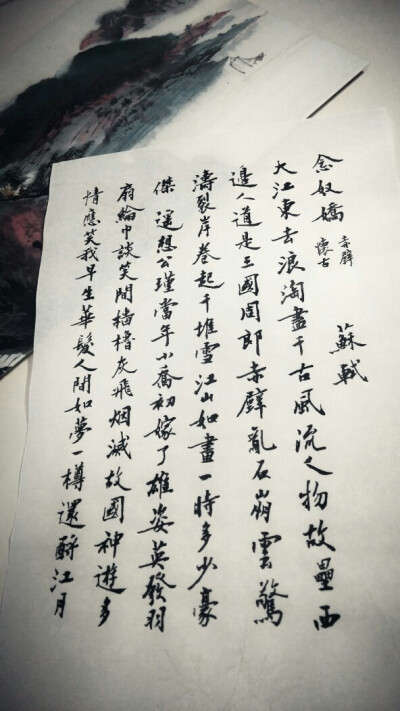 念奴嬌
赤壁
懷古
蘇軾
大江東去浪淘盡千古風流人物故壘西
邊人道是三國周郎赤壁亂石崩雲驚
濤裂岸卷起千堆雪江山如畫一時多少豪
傑遥想公瑾當年小喬初嫁了雄姿英發羽
扇綸巾談笑間檣櫓灰飛烟滅故國神遊多
情應笑我早生華髮人間如夢一樽還酹江月